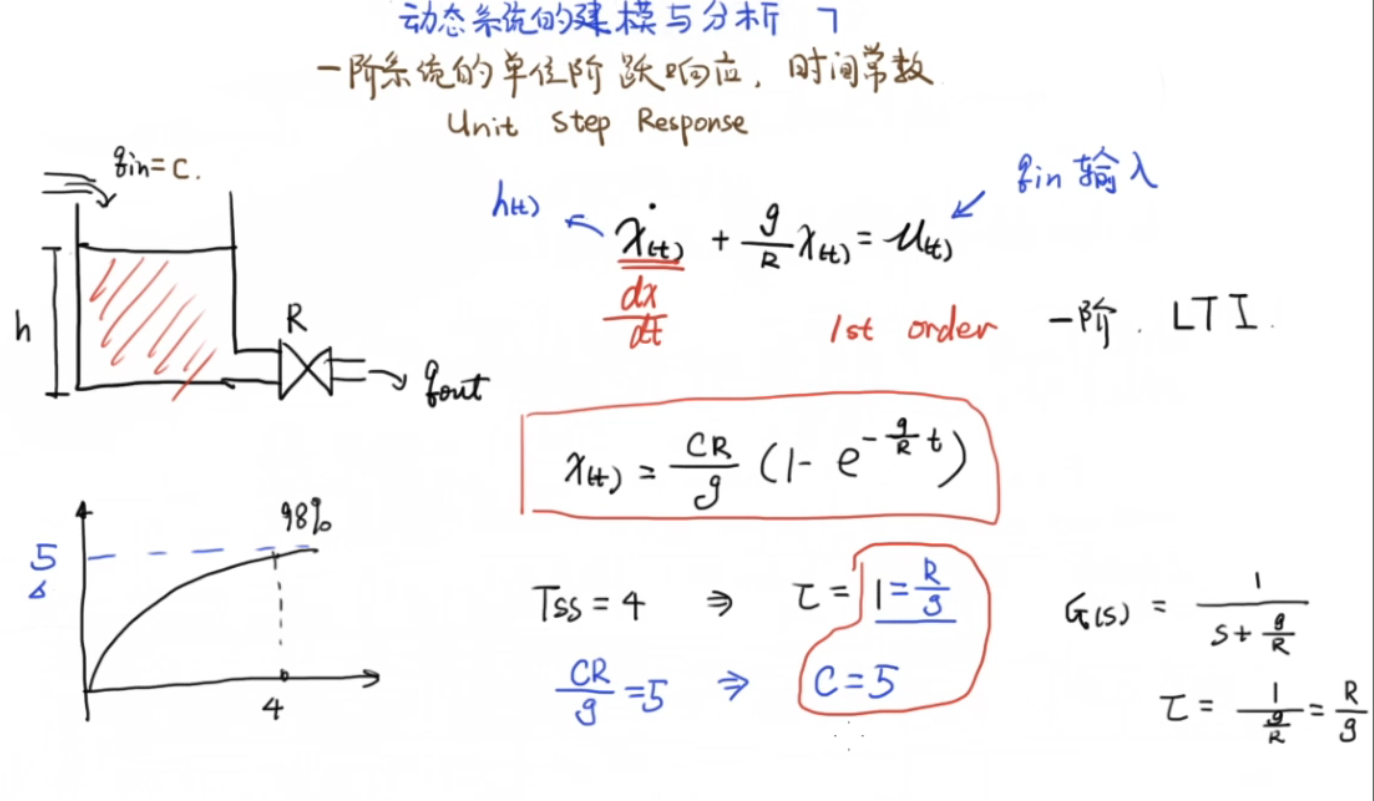 动态系统的建模与分析 7
一阶系统的单位阶跃响应，时间常数
Unit Step Response
qin = C.
h
R
qout
h(t)
qin 输入
ẋ(t) + g/R x(t) = u(t)
dx/dt
1st order 一阶. LTI.
x(t) = CR/g (1 - e^(-g/R t))
98%
5
4
Tss = 4 ⇒ τ = 1 = R/g
CR/g = 5 ⇒ C = 5
G(s) = 1/(s + g/R)
τ = 1/(g/R) = R/g